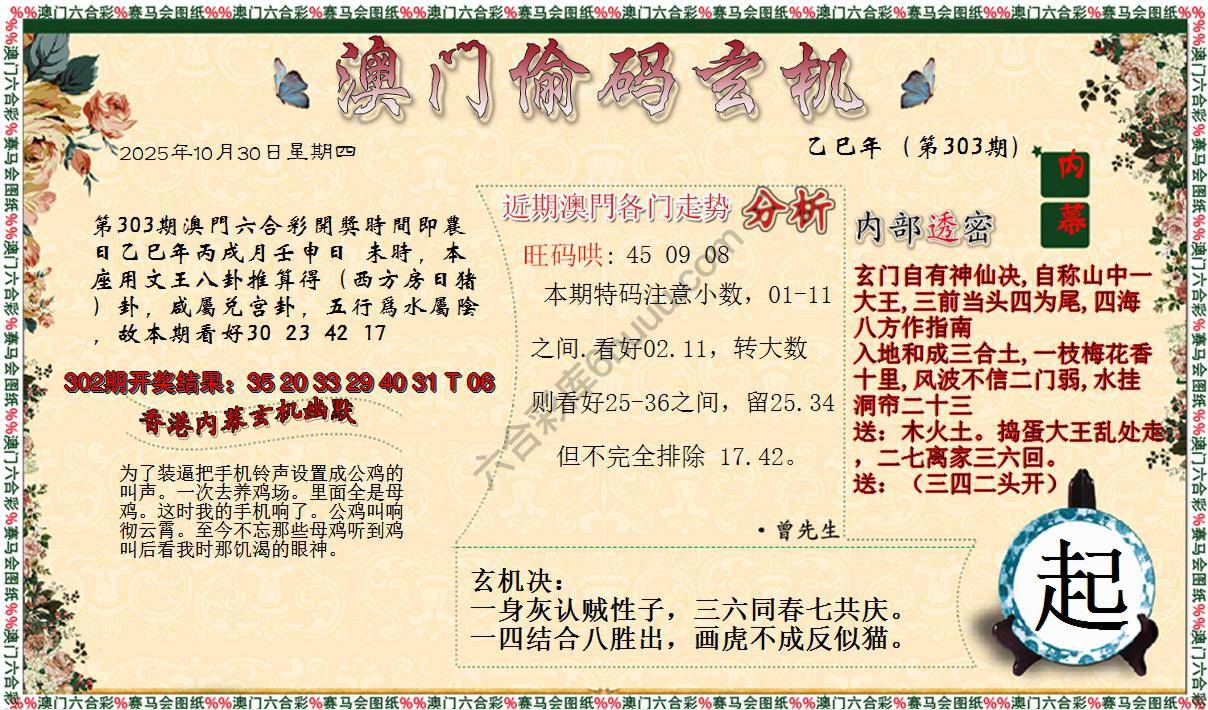 %%澳门六合彩%赛马会图纸%%澳门六合彩%赛马会图纸%%澳门六合彩%赛马会图纸
澳门偷码玄机
2025年10月30日星期四
乙巳年（第303期）
内幕
第303期澳門六合彩開獎時間即農
日乙巳年丙戌月壬申日 未時，本
座用文王八卦推算得（西方房日猪
）卦，咸屬兑宫卦，五行爲水屬陰
，故本期看好30 23 42 17
302期开奖结果：35 20 33 29 40 31 T 06
香港内幕玄机幽默
为了装逼把手机铃声设置成公鸡的
叫声。一次去养鸡场。里面全是母
鸡。这时我的手机响了。公鸡叫响
彻云霄。至今不忘那些母鸡听到鸡
叫后看我时那饥渴的眼神。
近期澳門各门走势 分析
旺码哄: 45 09 08
本期特码注意小数，01-11
之间.看好02.11，转大数
则看好25-36之间，留25.34
但不完全排除 17.42。
·曾先生
内部透密
玄门自有神仙决,自称山中一
大王,三前当头四为尾,四海
八方作指南
入地和成三合土,一枝梅花香
十里,风波不信二门弱,水挂
洞帘二十三
送：木火土。捣蛋大王乱处走
，二七离家三六回。
送：（三四二头开）
玄机决：
一身灰认贼性子，三六同春七共庆。
一四结合八胜出，画虎不成反似猫。
起
六合彩库6huuu.com